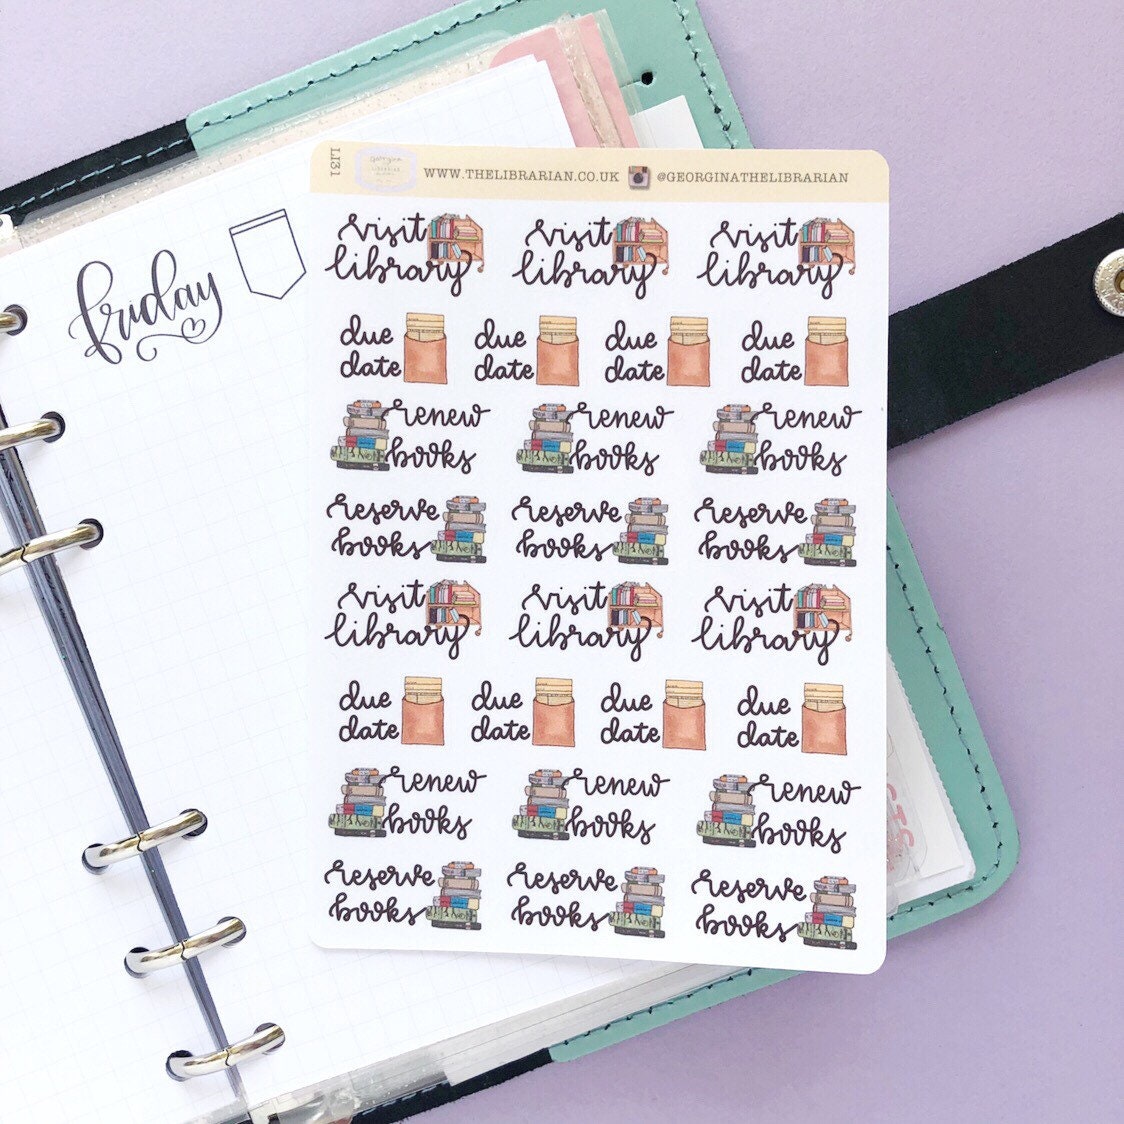 friday
LI31
georgina
WWW.THELIBRARIAN.CO.UK @GEORGINATHELIBRARIAN
visit visit visit
library library library
due due due due
date date date date
renew renew renew
books books books
reserve reserve reserve
books books books
visit visit visit
library library library
due due due due
date date date date
renew renew renew
books books books
reserve reserve reserve
books books books